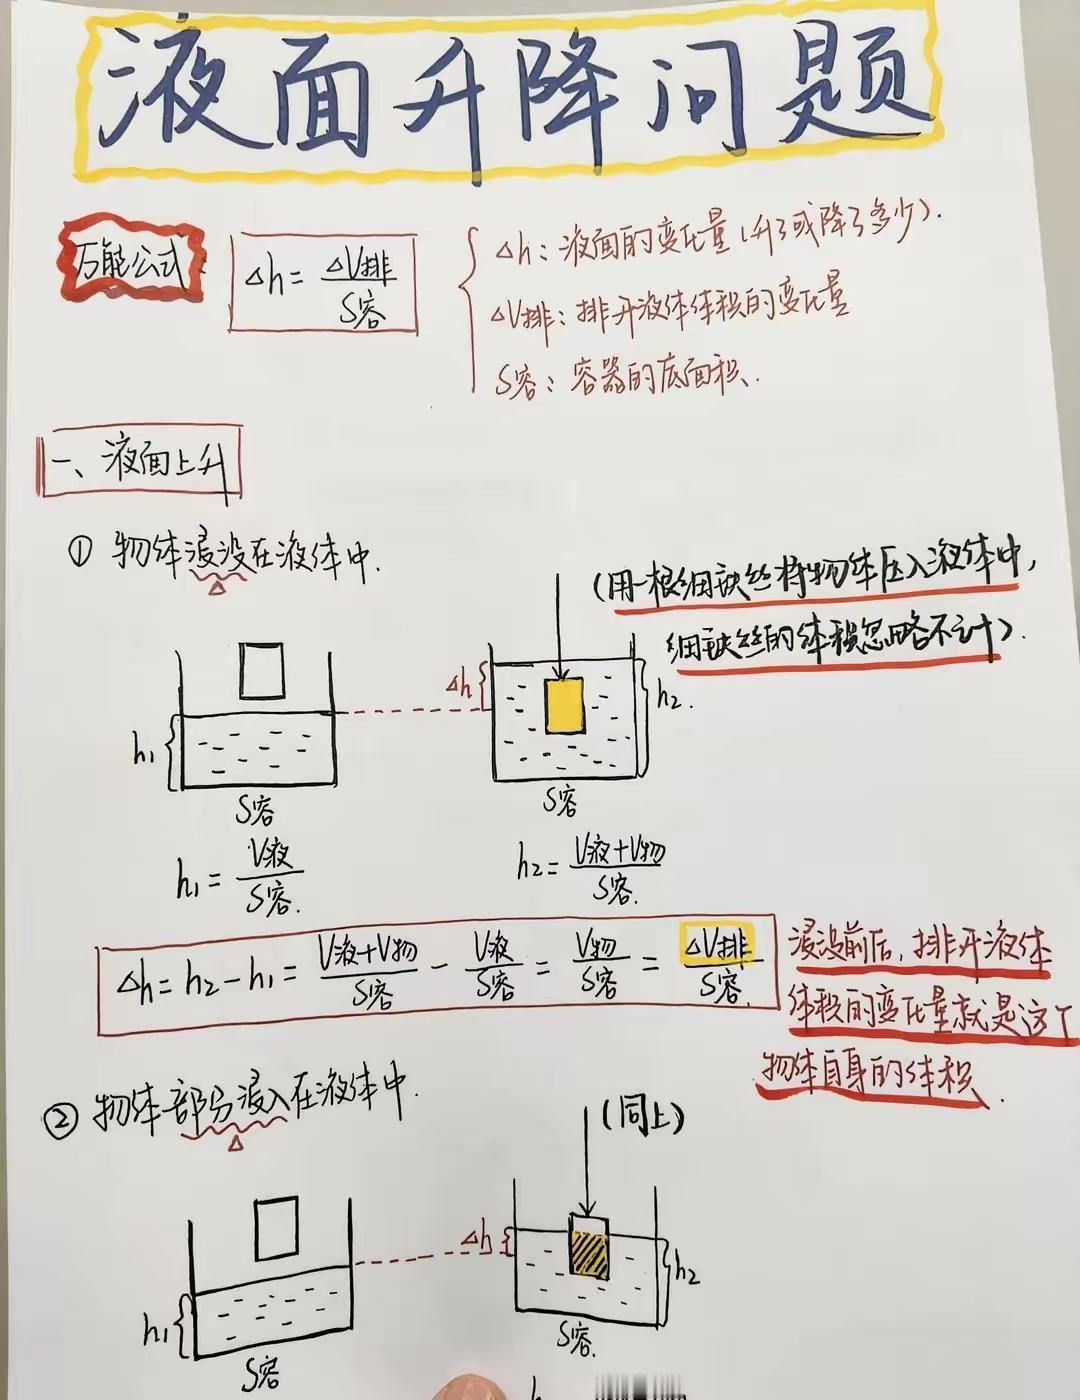 液面升降问题
万能公式:
Δh = ΔV排/S容
Δh: 液面的变化量(升了或降了多少).
ΔV排: 排开液体体积的变化量
S容: 容器的底面积.
一、液面上升
① 物体浸没在液体中.
(用一根细铁丝将物体压入液体中,
细铁丝的体积忽略不计).
h₁
S容
Δh
h₂.
S容
h₁ = V液/S容.
h₂ = V液+V物/S容.
Δh = h₂ - h₁ = V液+V物/S容 - V液/S容 = V物/S容 = ΔV排/S容.
浸没前后, 排开液体
体积的变化量就是这个
物体自身的体积.
② 物体部分浸入在液体中.
(同上)
h₁
S容
Δh
h₂
S容.